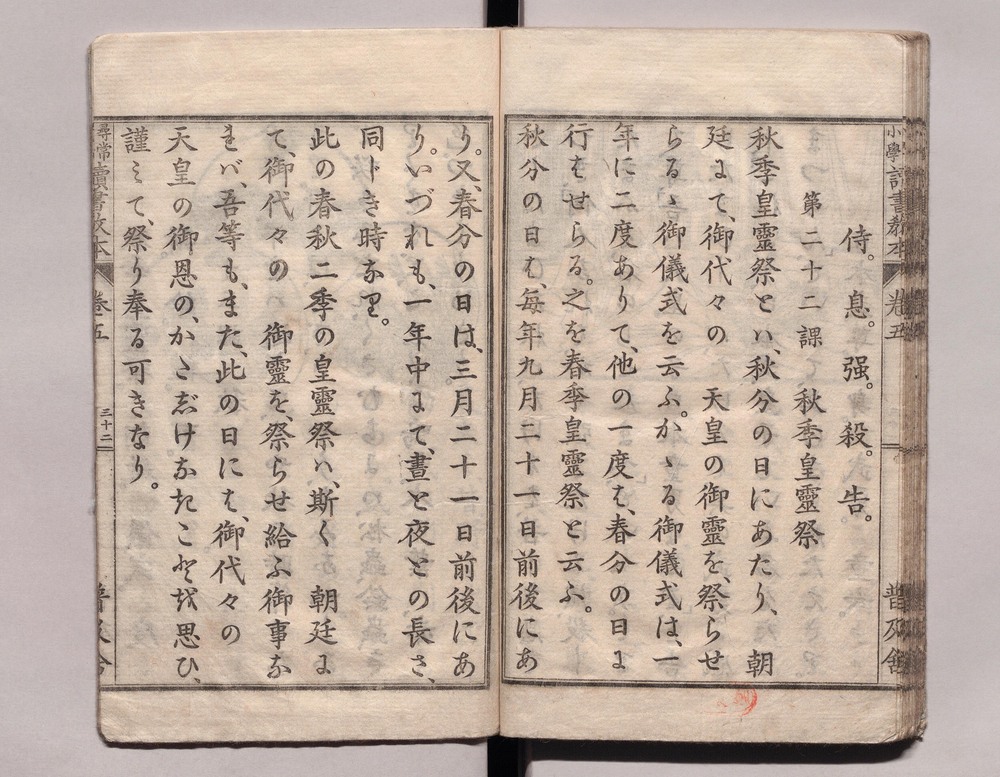 小學讀書教本
卷五
普及舍
侍。息。强。身殺。告。
第二十二課　秋季皇靈祭
秋季皇靈祭とハ、秋分の日にあたり、朝
廷にて、御代々の　天皇の御靈を、祭らせ
らるゝ御儀式を云ふ。かゝる御儀式は、一
年に二度ありて、他の一度は、春分の日に
行はせらる。之を春季皇靈祭と云ふ。
秋分の日は、每年九月二十一日前後にあ
り。又、春分の日は、三月二十一日前後にあ
り。いづれも、一年中にて、晝と夜との長さ、
同じき時なり。
此の春秋二季の皇靈祭ハ、斯く　朝廷に
て、御代々の　御靈を、祭らせ給ふ御事な
れバ、吾等も、また、此の日には、御代々の
天皇の御恩の、かたじけなきことを思ひ、
謹みて、祭り奉る可きなり。
尋常讀書教本
卷五
三十二
普及舍